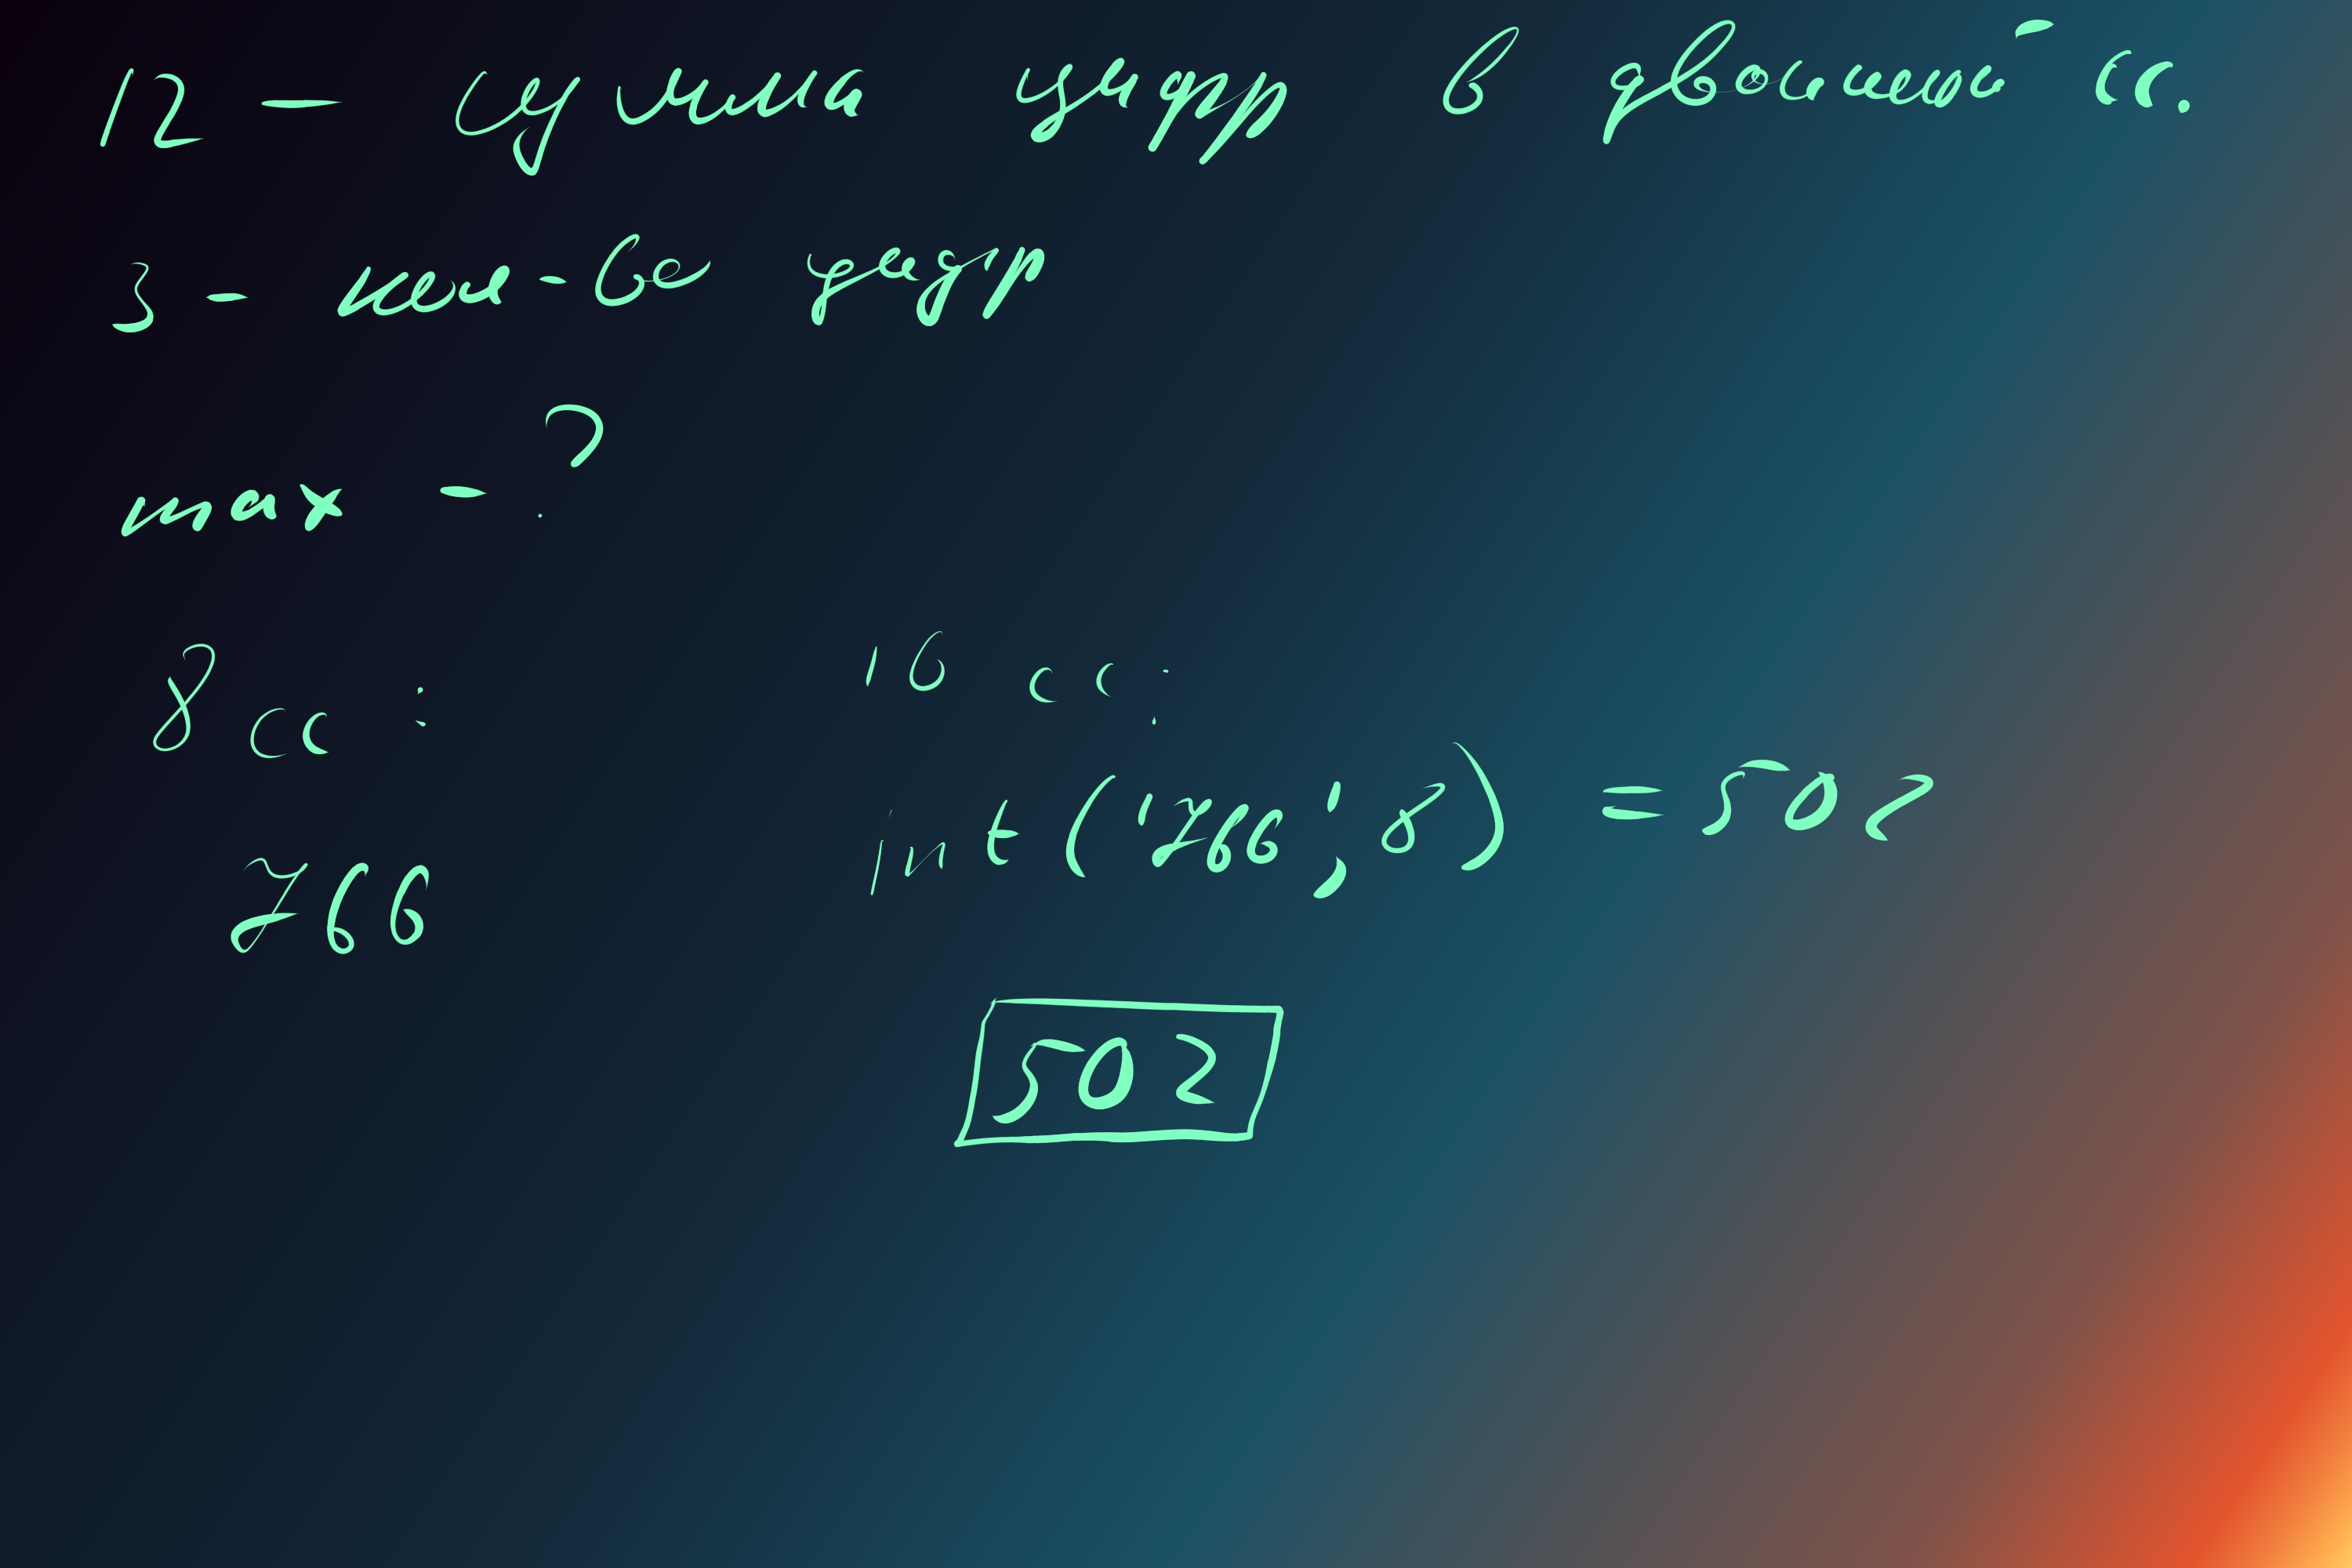 12 — сумма цифр в двоичной сс.
3 - кол-во цифр
max - ?
8 сс :
766
16 сс :
int('766', 8) = 502
502